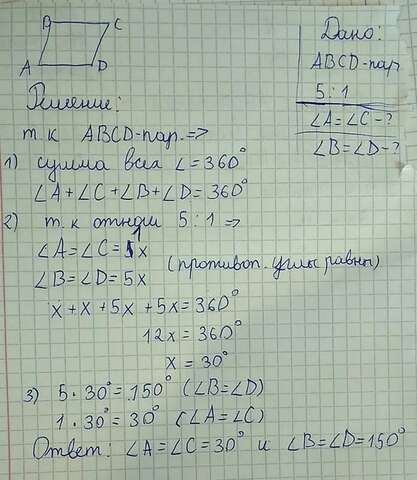 B C
A D
Дано:
ABCD-пар
5:1
∠A=∠C-?
∠B=∠D-?
Решение:
т.к ABCD-пар.=>
1) сумма всех ∠=360°
∠A+∠C+∠B+∠D=360°
2) т.к 5:1=>
∠A=∠C=1x
∠B=∠D=5x
(противоп. углы равны)
x+x+5x+5x=360°
12x=360°
x=30°
3) 5·30°=150° (∠B=∠D)
1·30°=30° (∠A=∠C)
Ответ: ∠A=∠C=30° и ∠B=∠D=150°